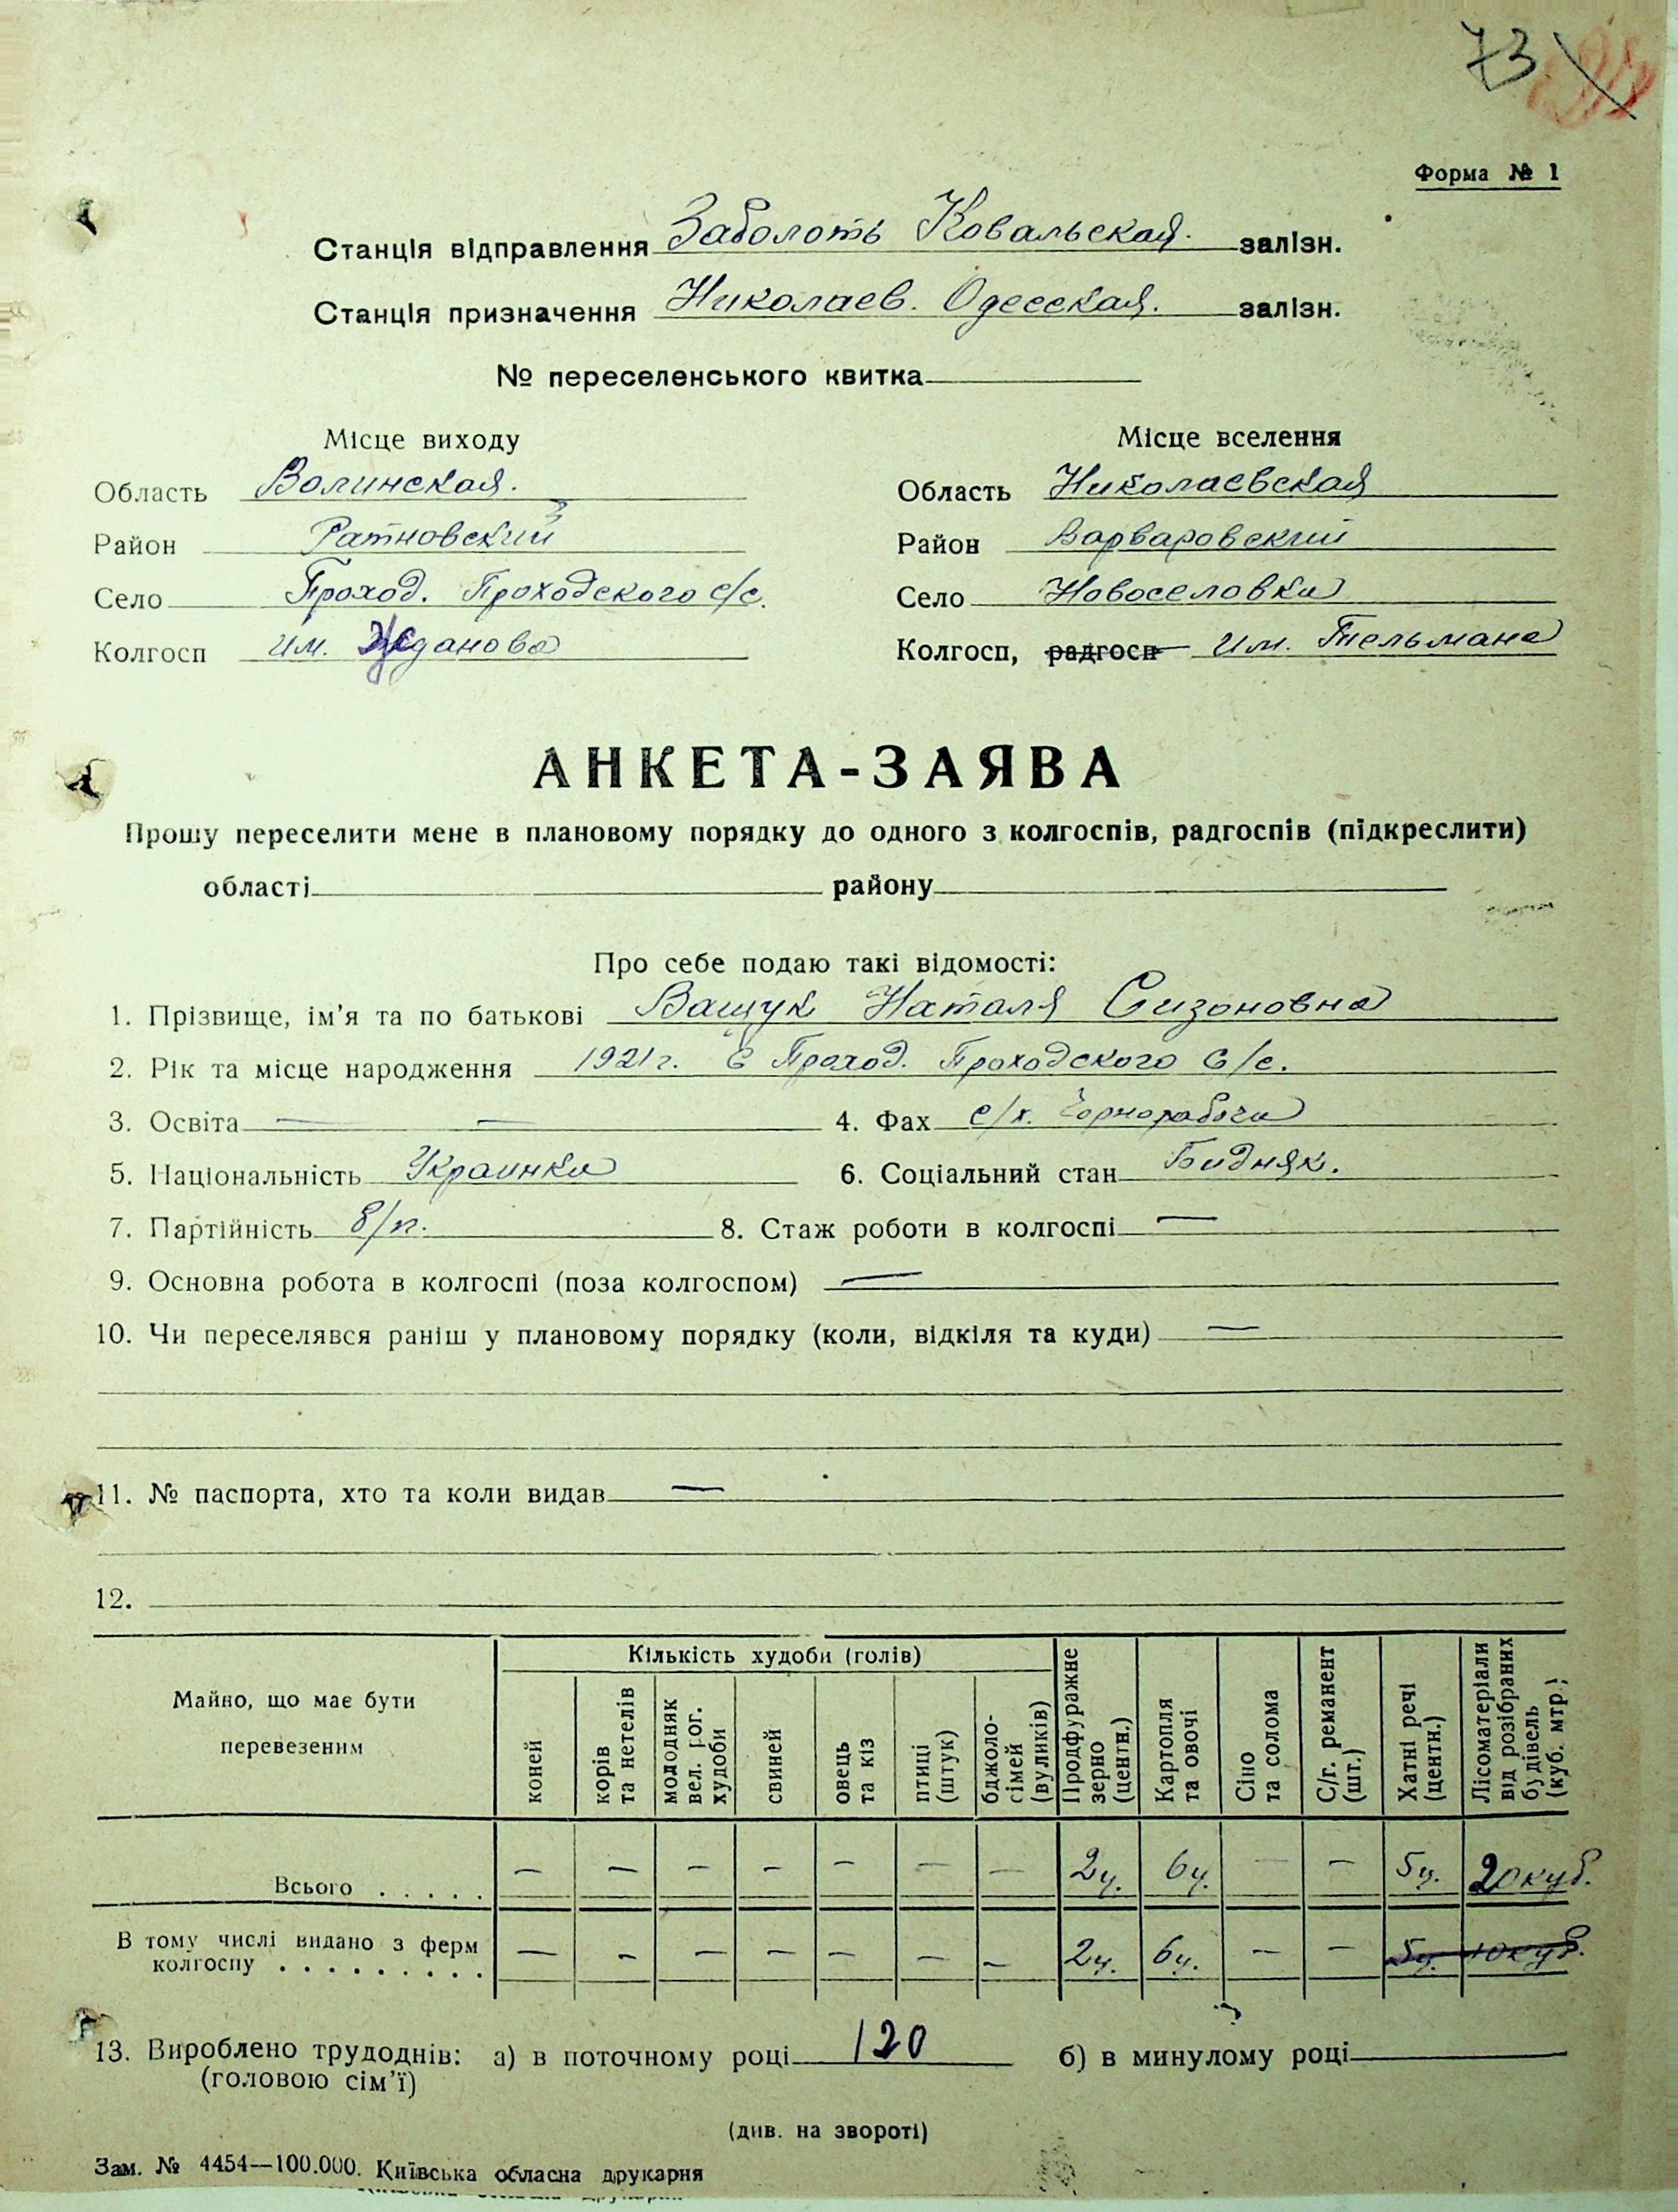 73
Форма № 1
Станція відправлення Заболоть Ковальская. залізн.
Станція призначення Николаев. Одесская. залізн.
№ переселенського квитка
Місце виходу Місце вселення
Область Волинская. Область Николаевская
Район Ратновский Район Варваровский
Село Проход. Проходского с/с. Село Новоселовка
Колгосп им. Жданова Колгосп, радгосп им. Тельмана
АНКЕТА-ЗАЯВА
Прошу переселити мене в плановому порядку до одного з колгоспів, радгоспів (підкреслити)
області району
Про себе подаю такі відомості:
1. Прізвище, ім'я та по батькові Ващук Наталя Сизоновна
2. Рік та місце народження 1921 г. С Проход. Проходского С/с.
3. Освіта — — 4. Фах с/х. Чорнорабоча
5. Національність Украинка 6. Соціальний стан Бидняк.
7. Партійність б/п. 8. Стаж роботи в колгоспі —
9. Основна робота в колгоспі (поза колгоспом) —
10. Чи переселявся раніш у плановому порядку (коли, відкіля та куди) —
11. № паспорта, хто та коли видав —
12.
Майно, що має бути перевезеним
Кількість худоби (голів)
коней
корів та нетелів
молодняк вел. рог. худоби
свиней
овець та кіз
птиці (штук)
бджоло-сімей (вуликів)
Продфуражне зерно (центн.)
Картопля та овочі
Сіно та солома
С/г. реманент (шт.)
Хатні речі (центн.)
Лісоматеріали від розібраних будівель (куб. мтр.)
Всього . . . . . — — — — — — — 2ц. 6ц. — — 5ц. 20 куб.
В тому числі видано з ферм
колгоспу . . . . . . . . . — — — — — — — 2ц. 6ц. — — 5ц. 10 куб.
13. Вироблено трудоднів: а) в поточному році 120 б) в минулому році
(головою сім'ї)
(див. на звороті)
Зам. № 4454—100.000. Київська обласна друкарня